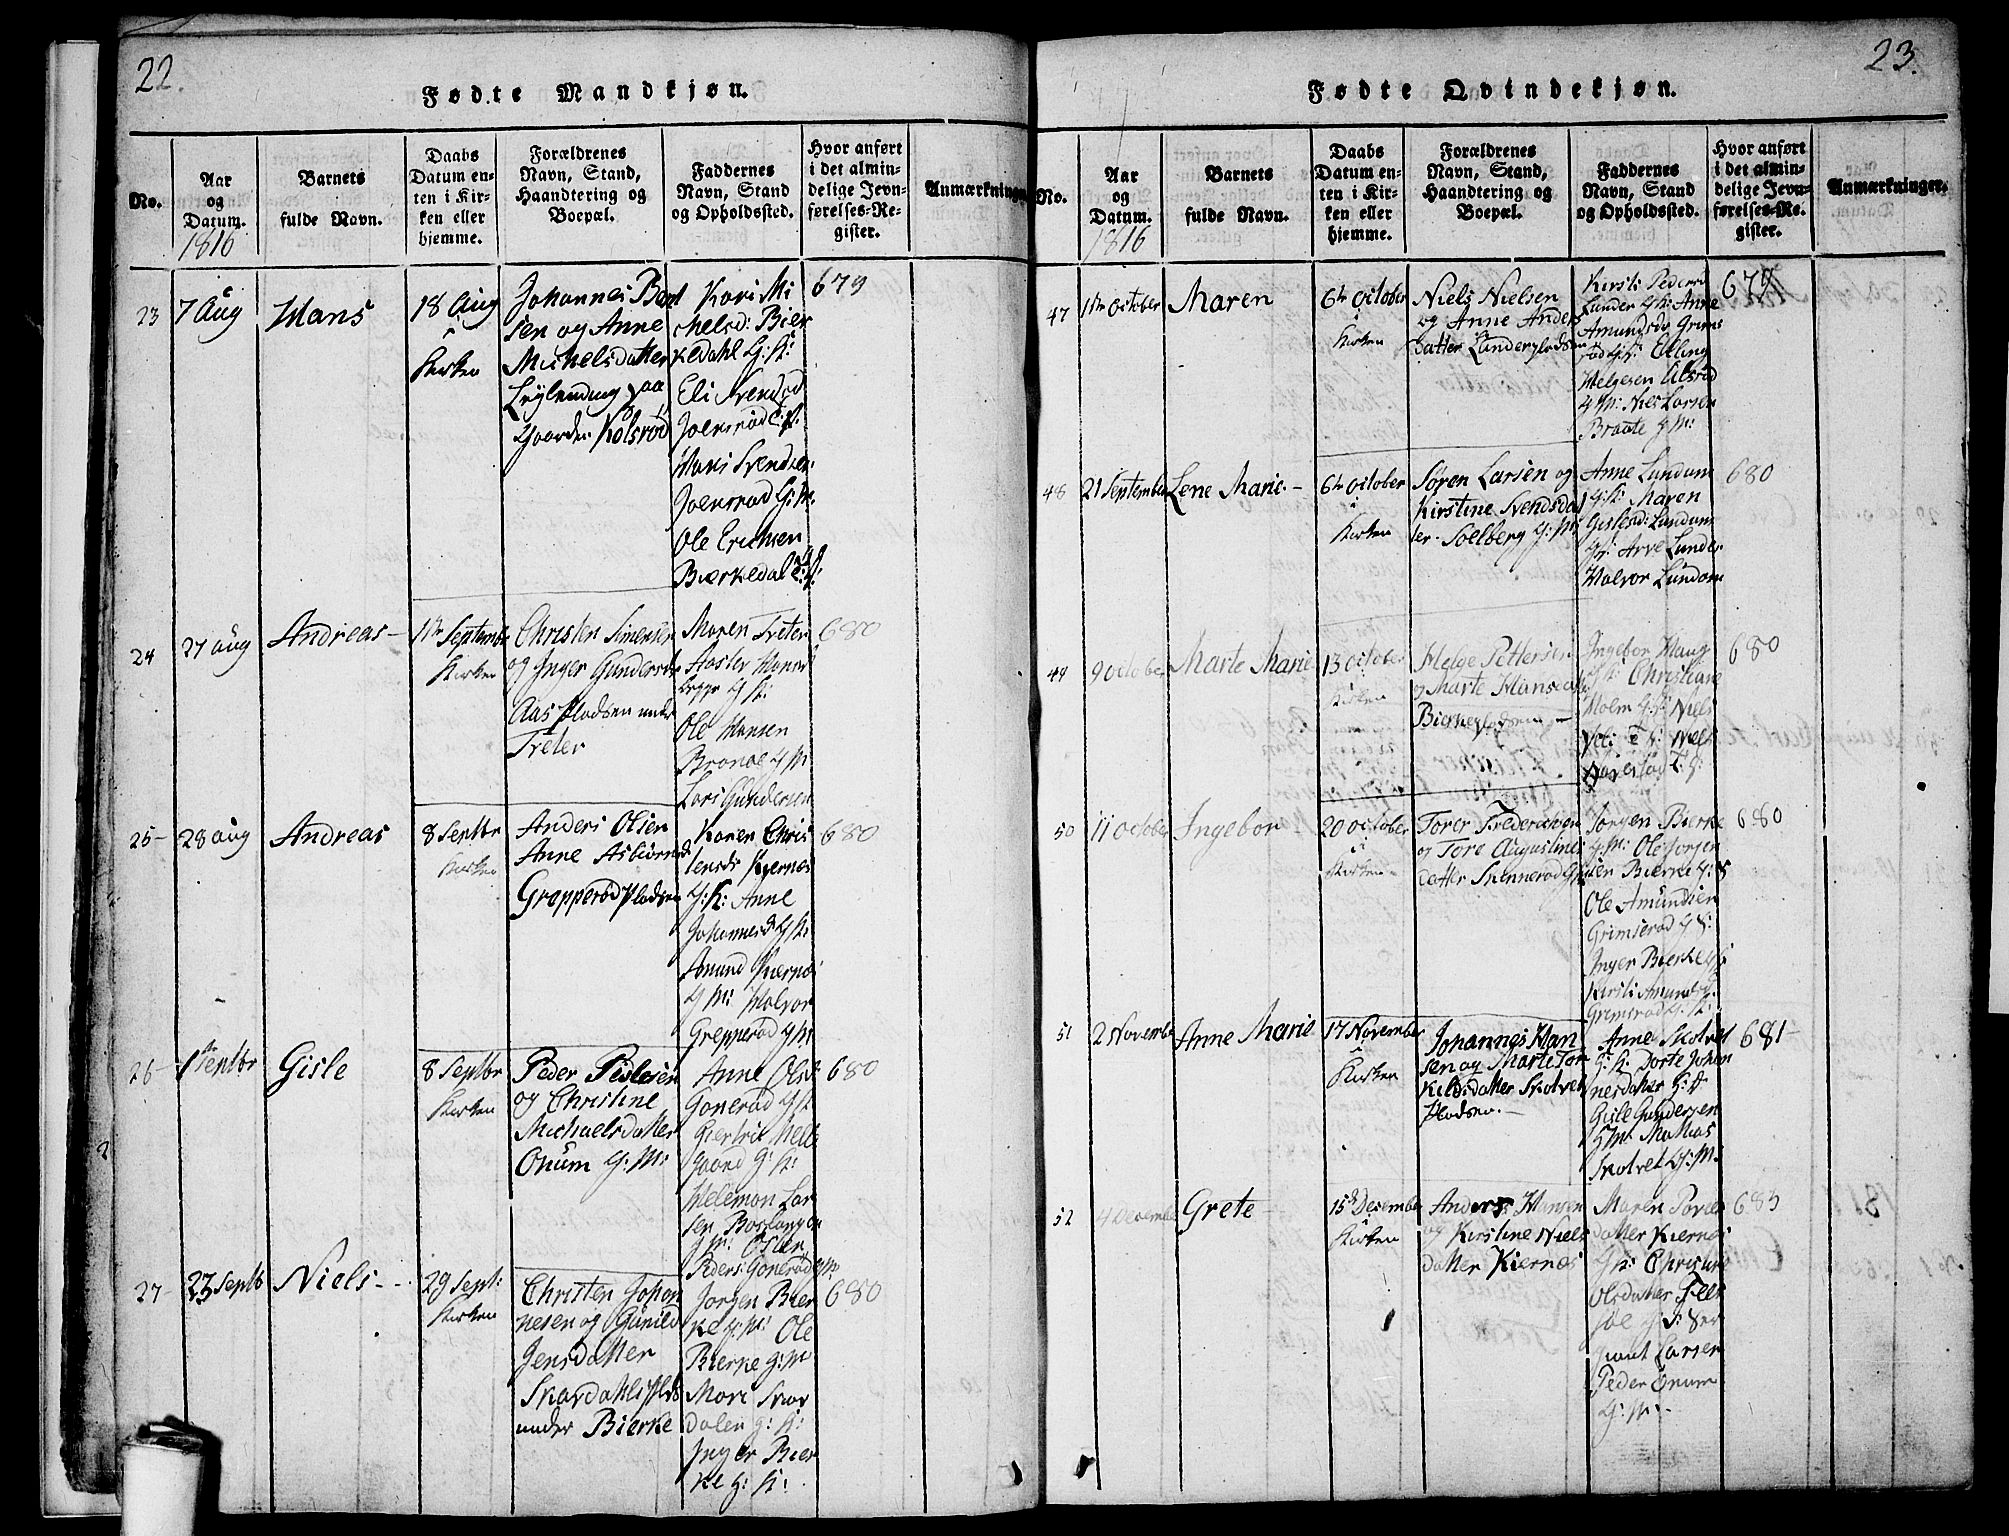 22.
Fødte Mandkjøn.
No.
Aar
og
Datum.
1816
Barnets
fulde Navn.
Daabs
Datum en-
ten i Kir-
ken eller
hjemme.
Forældrenes
Navn, Stand,
Haandtering og
Boepæl.
Faddernes
Navn, Stand
og Opholdssted.
Hvor anført
i det almin-
delige Jevn-
førelses-Re-
gister.
Anmærkninger
23
7 Aug
Hans
18 Aug
i
Kirken
Johannes
sen og Anne
Michelsdatter
paa
Gaarden Kolsrød
Kari Mi
chelsd: Bier
kedahl G: K:
Eli Svensd
Joensrød
Hans Svendsen
Joensrød G: M.
Ole Erichsen
Bierkedal
679
24
27 aug
Andreas -
Septembr
Kirken
Christen Simensen
og Inger Gundersd
Aas Pladsen under
Treter
Maren Treter
Aaster Hansd
G K:
Ole Hansen
G M
Lars Gundersen
680
25 -
28 aug
Andreas
8 Septbr
Kirken
Anders Olsen
Anne Asbiørnsd
Grapperød Pladsen
Karen Chris
tensd: Kiernæs
G: K: Anne
Johannesd G K:
Amund Kiernæs
G M: Halvor
Grepperød G M
680
26 -
Septbr
Gisle
8 Septbr
Kirken
Peder
og Christine
Michaelsdatter
Onum G: M:
Anne Olsd:
Gonerød G K
G: K:
Helemon Lar
sen
G M:
Peders Gonerød G M
680
27 -
23 Septb
Niels - -
29 Sept:
Kirken
Christen Johan
nesen og Gunild
Jensdatter
Skavdahls Plds
under Bierke
Jørgen Bier
ke G: M: Ole
Bierke G: M
Mari Skav
dalen G: K:
Inger Bier
ke G: K:
680
23.
Fødte Qvindekjøn.
No.
Aar
og
Datum.
1816
Barnets
fulde Navn.
Daabs
Datum en-
ten i Kir-
ken eller
hjemme.
Forældrenes
Navn, Stand,
Haandtering og
Boepæl.
Faddernes
Navn, Stand
og Opholdssted.
Hvor anført
i det almin-
delige Jevn-
førelses-Re-
gister.
Anmærkninger.
47
October
Maren
6te October
i
Kirken
Niels Nielsen
og Anne Anders
datter
Kirsti Peders
Lunder G K: Anne
Amundsd: Grims
rød
Helgesen
Niels Larsen
Braate G M:
679
48
21 September
Lene Marie -
6te October
i
Kirken
Søren Larsen og
Kirstine Svendsdat
ter Soelberg G: M:
Anne Lundum
G: K: Maren
Gislesd: Lundum
G: Arve Lunde
Halvor Lundom
680
49
9 October
Marte Marie
13 October
Kirken
Helge Pettersen
og Marte Hansdatter
Bierkepladsen -
Ingebor Haug
G K: Christiane
Holm G: K: Niels
Niels
680
50
11 October
Ingebor -
20 October
i
Kirken
Torer Fredericksen
og Tore Augustines
datter Skinnerød G
Jørgen Bierke
G: M: Ole Jorgen
sen Bierke G: S
Ole Amundsen
Grimserød G S:
Inger Bierke
Kirsti Amundsd
Grimsrød G: K:
680
51
2 November
Anne Marie
17 November
i
Kirken
Johannes Han
sen og Marte Tor
kildsdatter Skotvet
Pladsen. -
Anne Skotvet
G: K: Dorte Johan
nesdatter G: K
Gisle Gundersen
G M: Mathias
Skotvet G: M:
681 -
52
4 December
Grete -
15de December
Kirken
Anders Hansen
og Kirstine Niels
datter Kiernes
Maren
datter Kiernes
G K: Christine
Olsdatter
Ser
giant Larsen
Peder Onum
G: M: -
685